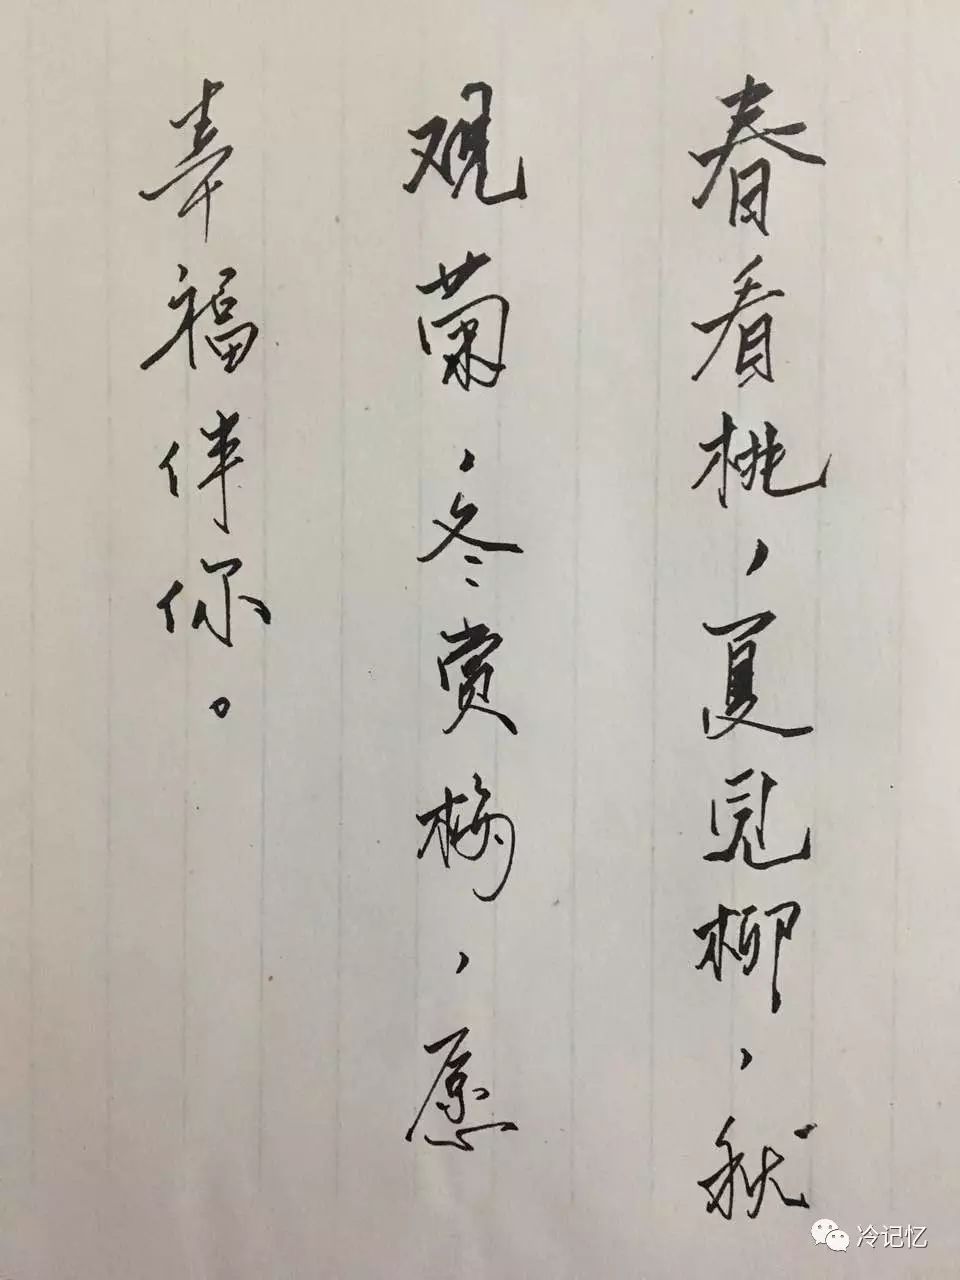 春看桃，夏见柳，秋
观菊，冬赏梅，愿
幸福伴你。
冷记忆